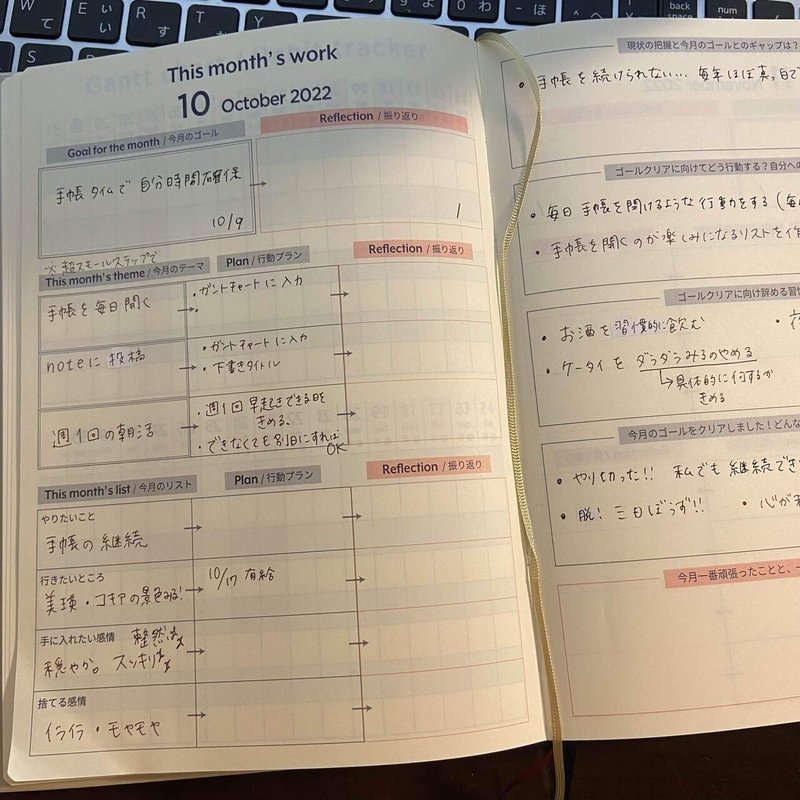 This month's work
10 October 2022
Goal for the month / 今月のゴール
Reflection / 振り返り
手帳タイムで 自分時間確保
10/9
※超スモールステップで
This month's theme / 今月のテーマ
Plan / 行動プラン
Reflection / 振り返り
手帳を毎日開く
・ガントチャートに入力
・
noteに投稿
・ガントチャートに入力
・下書きタイトル
週1回の朝活
・週1回早起きできる日を
きめる.
・できなくても別日にすれば
OK
This month's list / 今月のリスト
Plan / 行動プラン
Reflection / 振り返り
やりたいこと
手帳の継続
行きたいところ
美瑛・コキアの景色みる!
10/17 有給
手に入れたい感情 整然さ
穏やか。スッキリさ
捨てる感情
イライラ・モヤモヤ
現状の把握と今月のゴールとのギャップは?
・手帳を続けられない… 毎年ほぼ真っ白で
ゴールクリアに向けてどう行動する?自分への
・毎日 手帳を開けるような行動をする(毎
・手帳を開くのが楽しみになるリストを作
ゴールクリアに向け辞める習
・お酒を習慣的に飲む
・ケータイを ダラダラみるのやめる
具体的に何するか
きめる
今月のゴールをクリアしました!どんな
・やり切った!! 私でも継続でき
・脱! 三日ぼうず!!
・心が
今月一番頑張ったことと、
W
て
E
い
R
す
T
Y
back
space
num